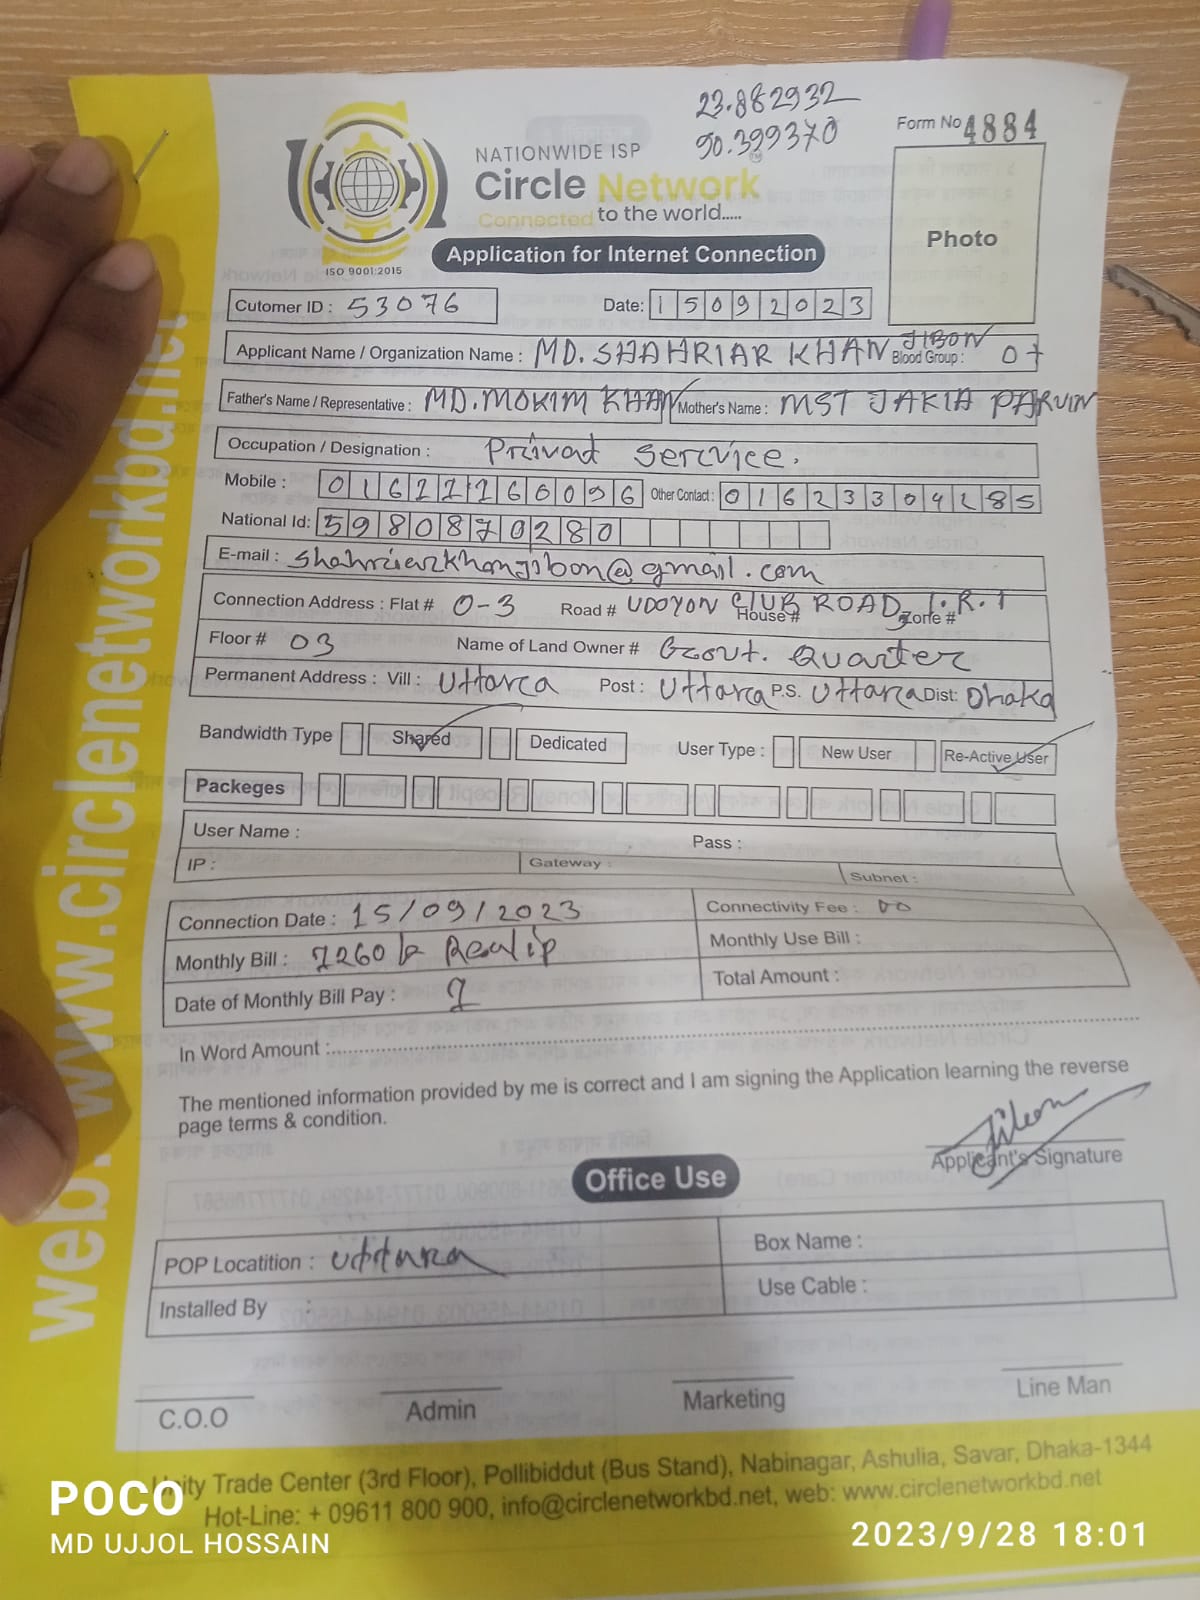 23.882932
90.399370
Form No 4884
NATIONWIDE ISP
Circle Network
Connected to the world.....
Photo
ISO 9001:2015
Application for Internet Connection
Cutomer ID : 53076 Date: 15092023
Applicant Name / Organization Name : MD. SHAHRIAR KHAN JIBON Blood Group : O+
Father's Name / Representative : MD. MOKIM KHAN Mother's Name : MST JAKIA PARVIN
Occupation / Designation : Privat Service.
Mobile : Other Contact :
National Id: 5980870280
E-mail : @gmail.com
Connection Address : Flat # O-3 Road # UDOYON CLUB ROAD House # Zone #
Floor # 03 Name of Land Owner # Govt. Quarter
Permanent Address : Vill : Uttara Post : Uttara P.S. Uttara Dist: Dhaka
Bandwidth Type Shared Dedicated User Type : New User Re-Active User
Packeges
User Name : Pass :
IP : Gateway : Subnet :
Connection Date : 15/09/2023 Connectivity Fee :
Monthly Bill : Monthly Use Bill :
Date of Monthly Bill Pay : Total Amount :
In Word Amount :
The mentioned information provided by me is correct and I am signing the Application learning the reverse
page terms & condition.
Applicant's Signature
Office Use
POP Locatition : uttara Box Name :
Installed By : Use Cable :
C.O.O Admin Marketing Line Man
Unity Trade Center (3rd Floor), Pollibiddut (Bus Stand), Nabinagar, Ashulia, Savar, Dhaka-1344
Hot-Line: + 09611 800 900, info@circlenetworkbd.net, web: www.circlenetworkbd.net
web: www.circlenetworkbd.net
POCO
MD UJJOL HOSSAIN
2023/9/28 18:01